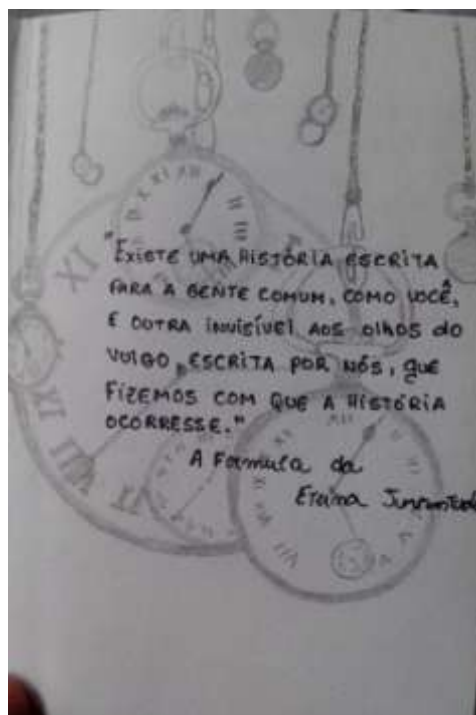 "EXISTE UMA HISTÓRIA ESCRITA
PARA A GENTE COMUM, COMO VOCÊ,
E OUTRA INVISÍVEL AOS OLHOS DO
VULGO, ESCRITA POR NÓS, QUE
FIZEMOS COM QUE A HISTÓRIA
OCORRESSE."
A Fórmula da
Eterna Juventude